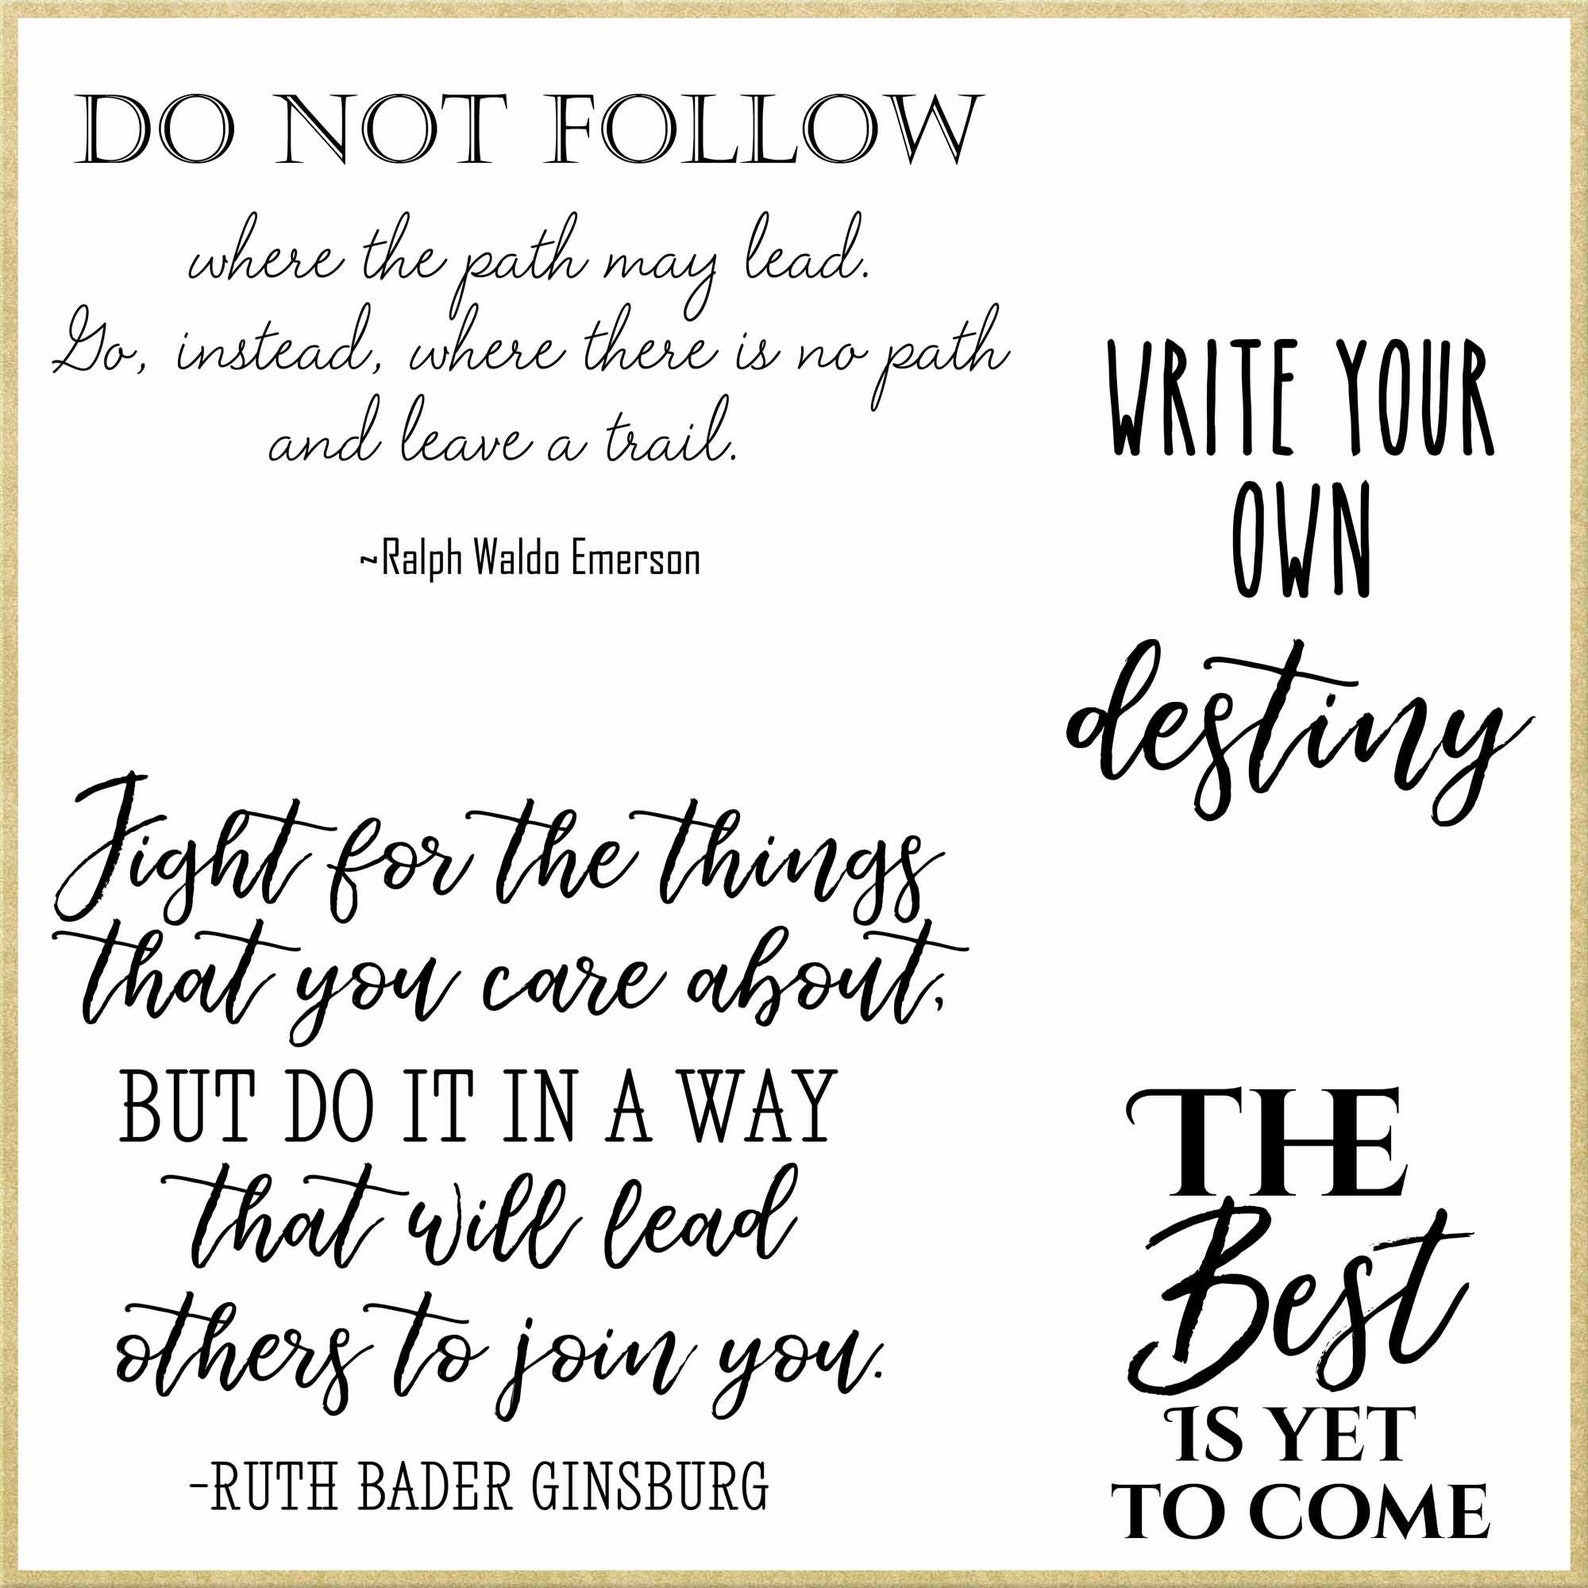 DO NOT FOLLOW
where the path may lead.
Go, instead, where there is no path
and leave a trail.
~Ralph Waldo Emerson
WRITE YOUR
OWN
destiny
Fight for the things
that you care about,
BUT DO IT IN A WAY
that will lead
others to join you.
-RUTH BADER GINSBURG
THE
Best
IS YET
TO COME